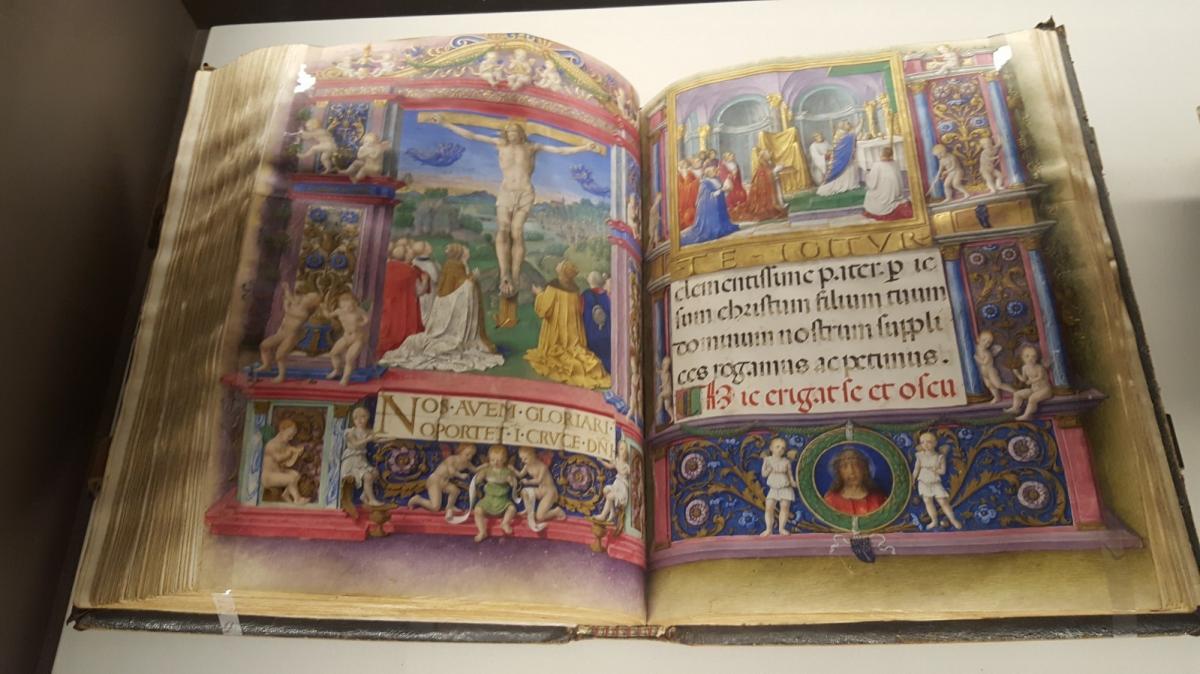 NOS·AVEM·GLORIARI·
OPORTET·I·CRVCE·DÑ
TE-IGITVR
clementissime pater. p ie
sum christum filium tuum
dominum nostrum suppli
ces rogamus ac petimus.
Hic erigat se et oscu